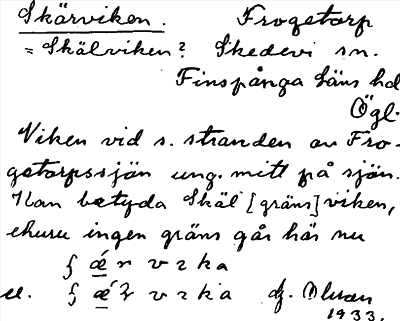 Skärviken. Frogetorp
= Skälviken? Skedevi sn.
Finspånga läns hd
Ögl.
Viken vid s. stranden av Fro-
getorpssjön ung. mitt på sjön.
Kan betyda Skäl [gräns]viken,
ehuru ingen gräns går här nu
ʃ ǽ r v ɿ k a
el. v ɿ k a
1933.